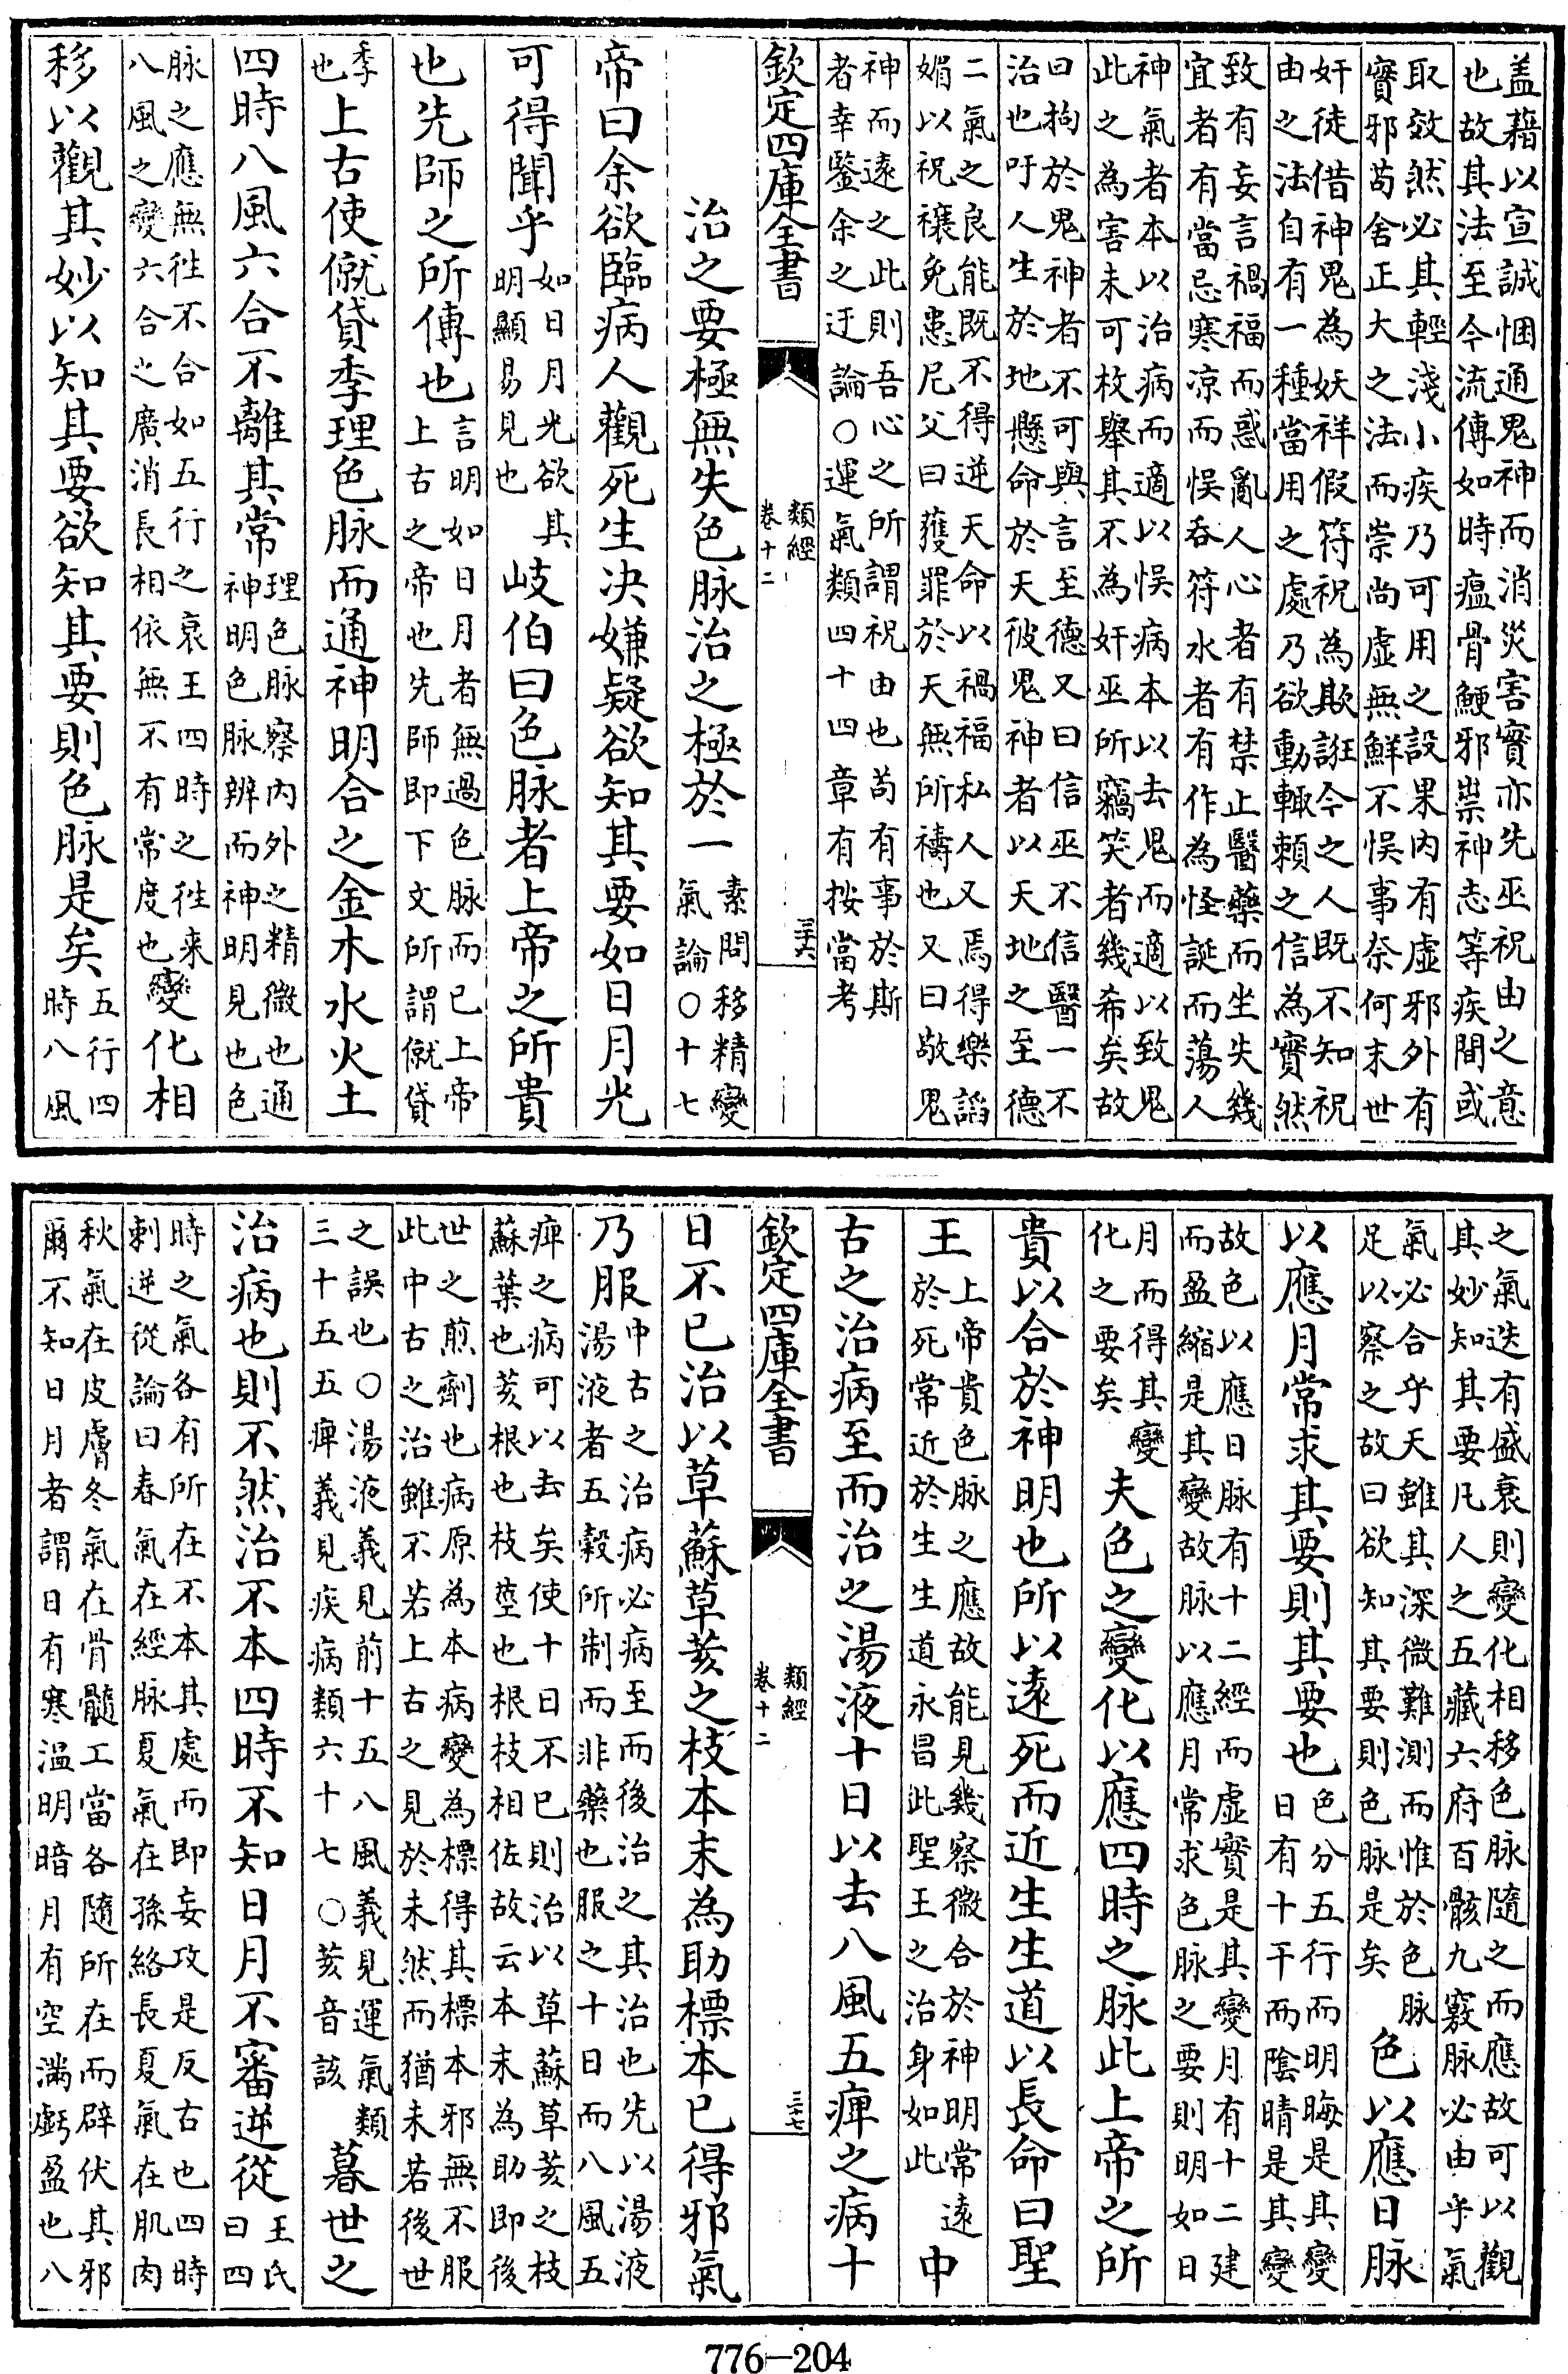 盖藉以宣誠悃通鬼神而消災害實亦先巫祝由之意
也故其法至今流傳如時瘟骨鯁邪祟神志等疾間或
取效然必其輕淺小疾乃可用之設果内有虛邪外有
實邪苟舍正大之法而崇尚虛無鮮不悞事奈何末世
奸徒借神鬼為妖祥假符祝為欺誑今之人既不知祝
由之法自有一種當用之處乃欲動輙賴之信為實然
致有妄言禍福而惑亂人心者有禁止醫藥而坐失幾
宜者有當忌寒凉而悞吞符水者有作為怪誕而蕩人
神氣者本以治病而適以悞病本以去鬼而適以致鬼
此之為害未可枚舉其不為奸巫所竊笑者幾希矣故
曰拘於鬼神者不可與言至德又曰信巫不信醫一不
治也吁人生於地懸命於天彼鬼神者以天地之至德
二氣之良能既不得逆天命以禍福私人又焉得樂謟
媚以祝禳免患尼父曰獲罪於天無所禱也又曰敬鬼
神而遠之此則吾心之所謂祝由也苟有事於斯
者幸鑒余之迂論○運氣類四十四章有按當考
欽定四庫全書
類經
卷十二
三十六
治之要極無失色脉治之極於一素問移精變
氣論○十七
帝曰余欲臨病人觀死生決嫌疑欲知其要如日月光
可得聞乎如日月光欲其
明顯易見也岐伯曰色脉者上帝之所貴
也先師之所傳也言明如日月者無過色脉而已上帝
上古之帝也先師即下文所謂僦貸
季
也上古使僦貸季理色脉而通神明合之金木水火土
四時八風六合不離其常理色脉察内外之精微也通
神明色脉辨而神明見也色
脉之應無徃不合如五行之衰王四時之徃来
八風之變六合之廣消長相依無不有常度也變化相
移以觀其妙以知其要欲知其要則色脉是矣五行四
時八風
之氣迭有盛衰則變化相移色脉隨之而應故可以觀
其妙知其要凡人之五藏六府百骸九竅脉必由乎氣
氣必合乎天雖其深微難測而惟於色脉
足以察之故曰欲知其要則色脉是矣色以應日脉
以應月常求其要則其要也色分五行而明晦是其變
日有十干而陰晴是其變
故色以應日脉有十二經而虛實是其變月有十二建
而盈縮是其變故脉以應月常求色脉之要則明如日
月而得其變
化之要矣夫色之變化以應四時之脉此上帝之所
貴以合於神明也所以遠死而近生生道以長命曰聖
王上帝貴色脉之應故能見幾察微合於神明常遠
於死常近於生生道永昌此聖王之治身如此中
古之治病至而治之湯液十日以去八風五痺之病十
欽定四庫全書
類經
卷十二
三十七
日不已治以草蘇草荄之枝本末為助標本已得邪氣
乃服中古之治病必病至而後治之其治也先以湯液
湯液者五穀所制而非藥也服之十日而八風五
痺之病可以去矣使十日不已則治以草蘇草荄之枝
蘇葉也荄根也枝莖也根枝相佐故云本末為助即後
世之煎劑也病原為本病變為標得其標本邪無不服
此中古之治雖不若上古之見於未然而猶未若後世
之誤也○湯液義見前十五八風義見運氣類
三十五五痺義見疾病類六十七○荄音該暮世之
治病也則不然治不本四時不知日月不審逆從王氏
曰四
時之氣各有所在不本其處而即妄攻是反古也四時
刺逆從論曰春氣在經脉夏氣在孫絡長夏氣在肌肉
秋氣在皮膚冬氣在骨髓工當各隨所在而辟伏其邪
爾不知日月者謂日有寒温明暗月有空滿虧盈也八
776-204